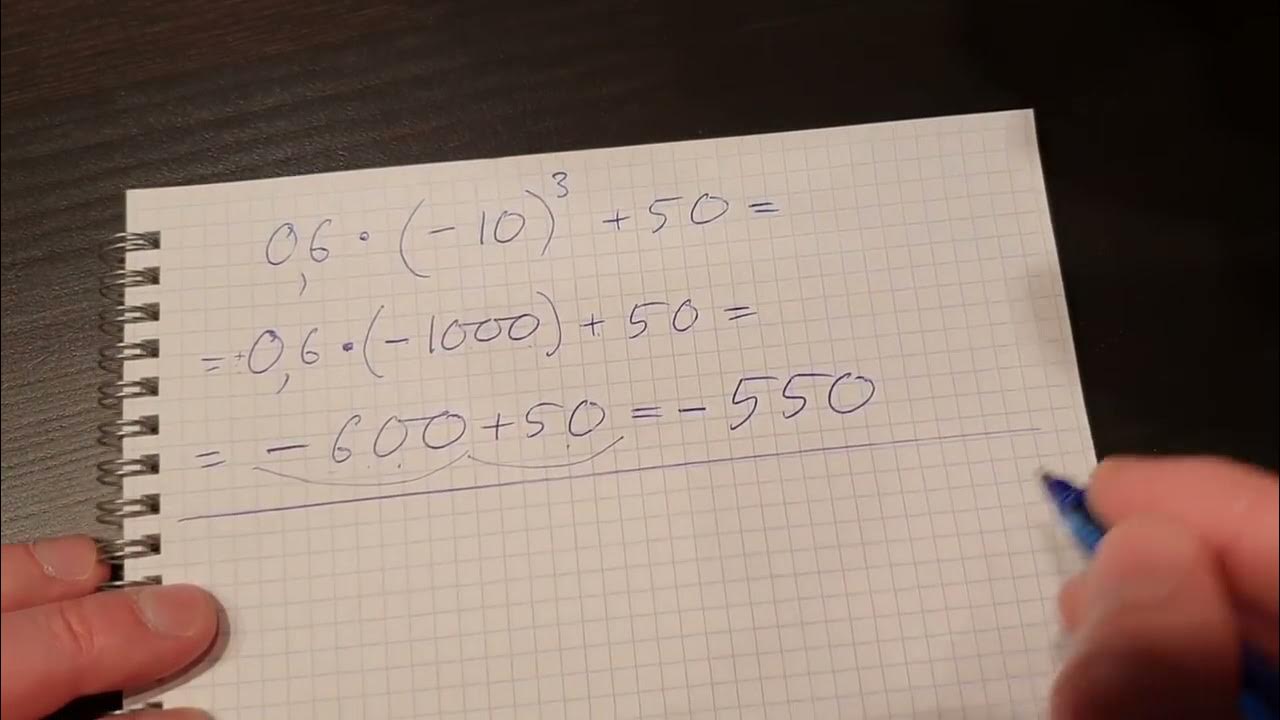 0,6 · (-10)³ + 50 =
= +0,6 · (-1000) + 50 =
= -600 + 50 = -550